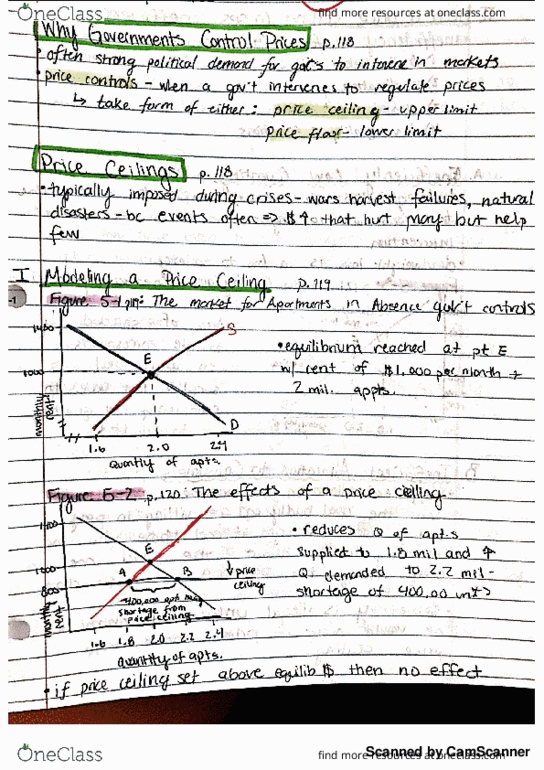 OneClass
find more resources at oneclass.com
Why Governments Control Prices p.118
• often strong political demand for gov's to intervene in markets
• price controls - when a gov't intervenes to regulate prices
↳ take form of either: price ceiling - upper limit
price floor - lower limit
Price Ceilings p. 118
• typically imposed during crises - wars harvest failures, natural
disasters - bc events often => $↑ that hurt many but help
few
I Modeling a Price Ceiling p.119
Figure 5-1 p119: The market for Apartments in Absence gov't controls
1400
S
E
1000
monthly rent
D
1.6 2.0 2.4
quantity of apts.
• equilibrium reached at pt E
w/ rent of $1,000 per month +
2 mil. appts.
Figure 5-2 p.120: The effects of a price ceiling
1400
E
1000
A B
↓ price
ceiling
800
monthly rent
400,000 apt
shortage from
price ceiling
1.6 1.8 2.0 2.2 2.4
quantity of apts.
• reduces Q of apts
supplied to 1.8 mil and ↑
Q demanded to 2.2 mil -
shortage of 400,00
• if price ceiling set above equilib $ then no effect
OneClass
find more resources at oneclass.com
Scanned by CamScanner